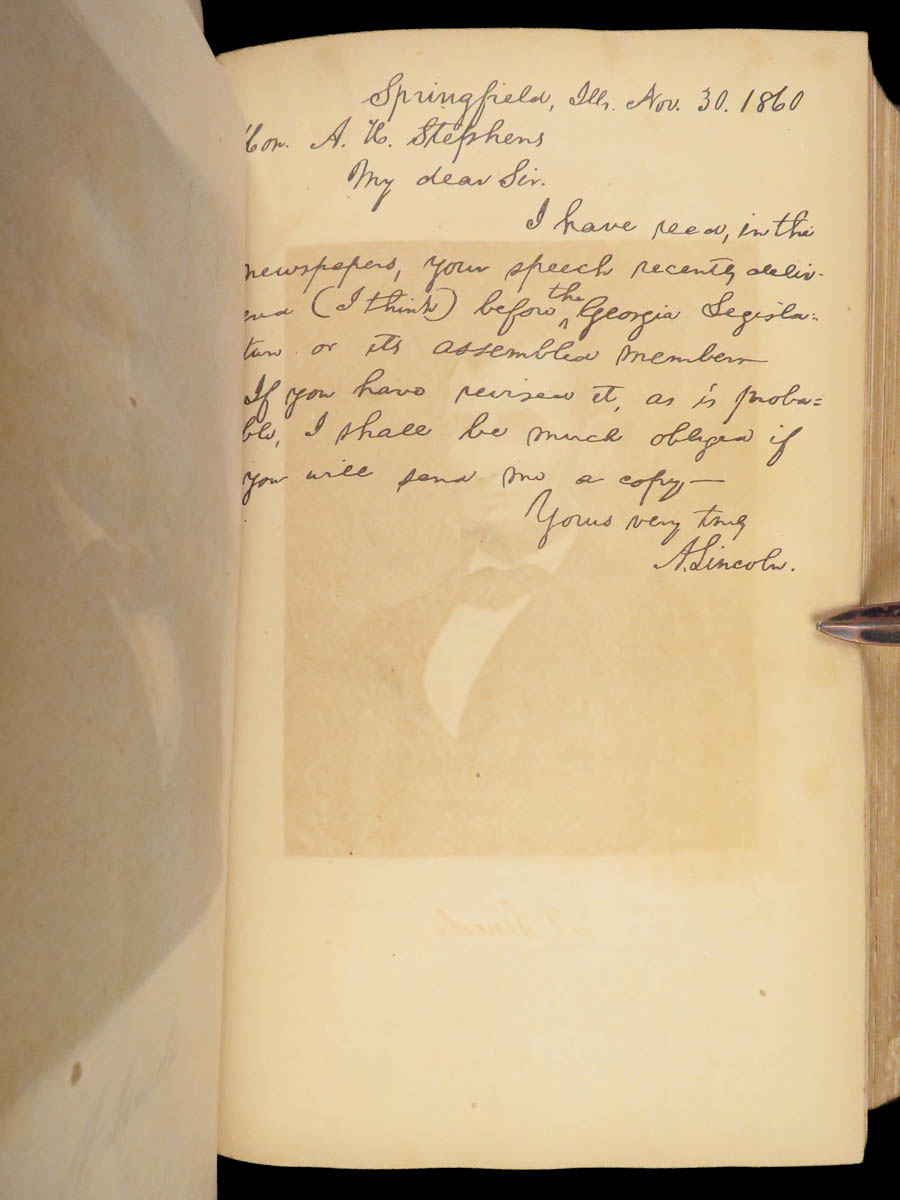 Springfield, Ills. Nov. 30. 1860
Hon. A. H. Stephens
My dear Sir.
I have read, in the
newspapers, your speech recently deliv-
ered (I think) before the Georgia Legisla=
ture or its assembled members—
If you have revised it, as is proba=
ble, I shall be much obliged if
you will send me a copy—
Yours very truly
A. Lincoln.
A. Lincoln